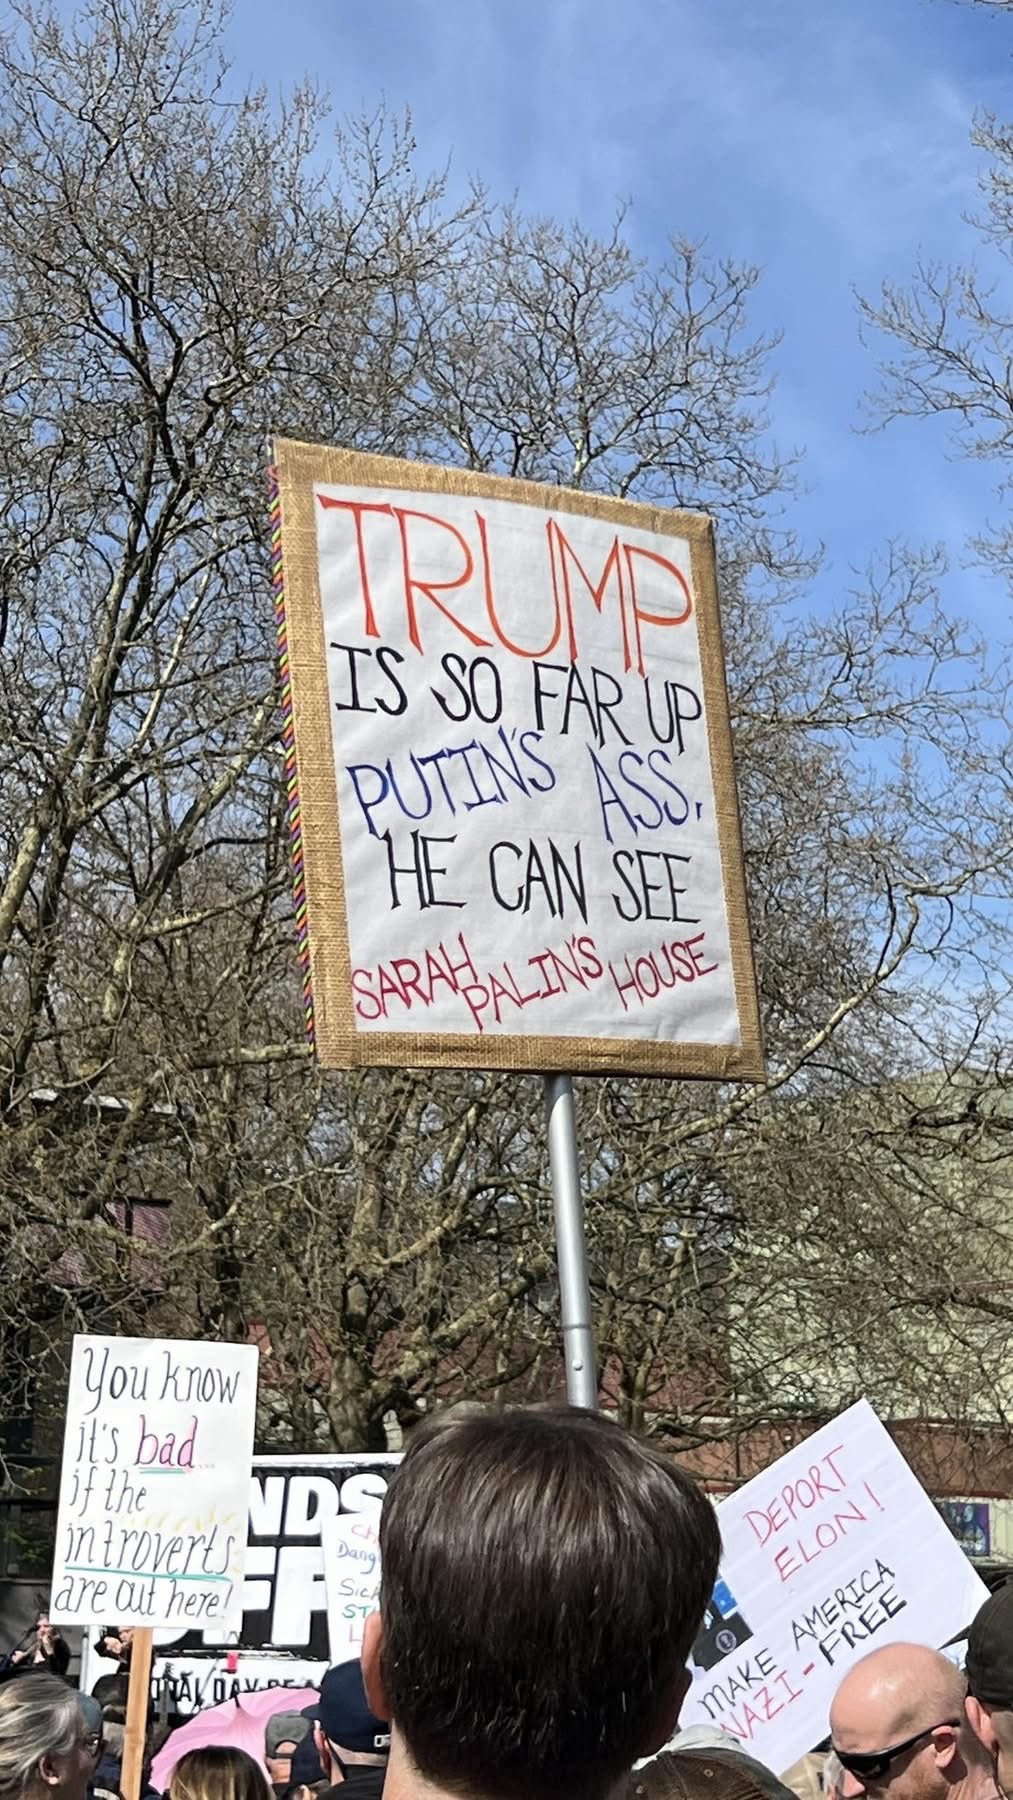 TRUMP
IS SO FAR UP
PUTIN'S ASS,
HE CAN SEE
SARAH PALIN'S HOUSE
You know
it's bad...
if the
introverts
are out here!
NDS
FF
DAY
DEPORT
ELON!
MAKE AMERICA
NAZI-FREE